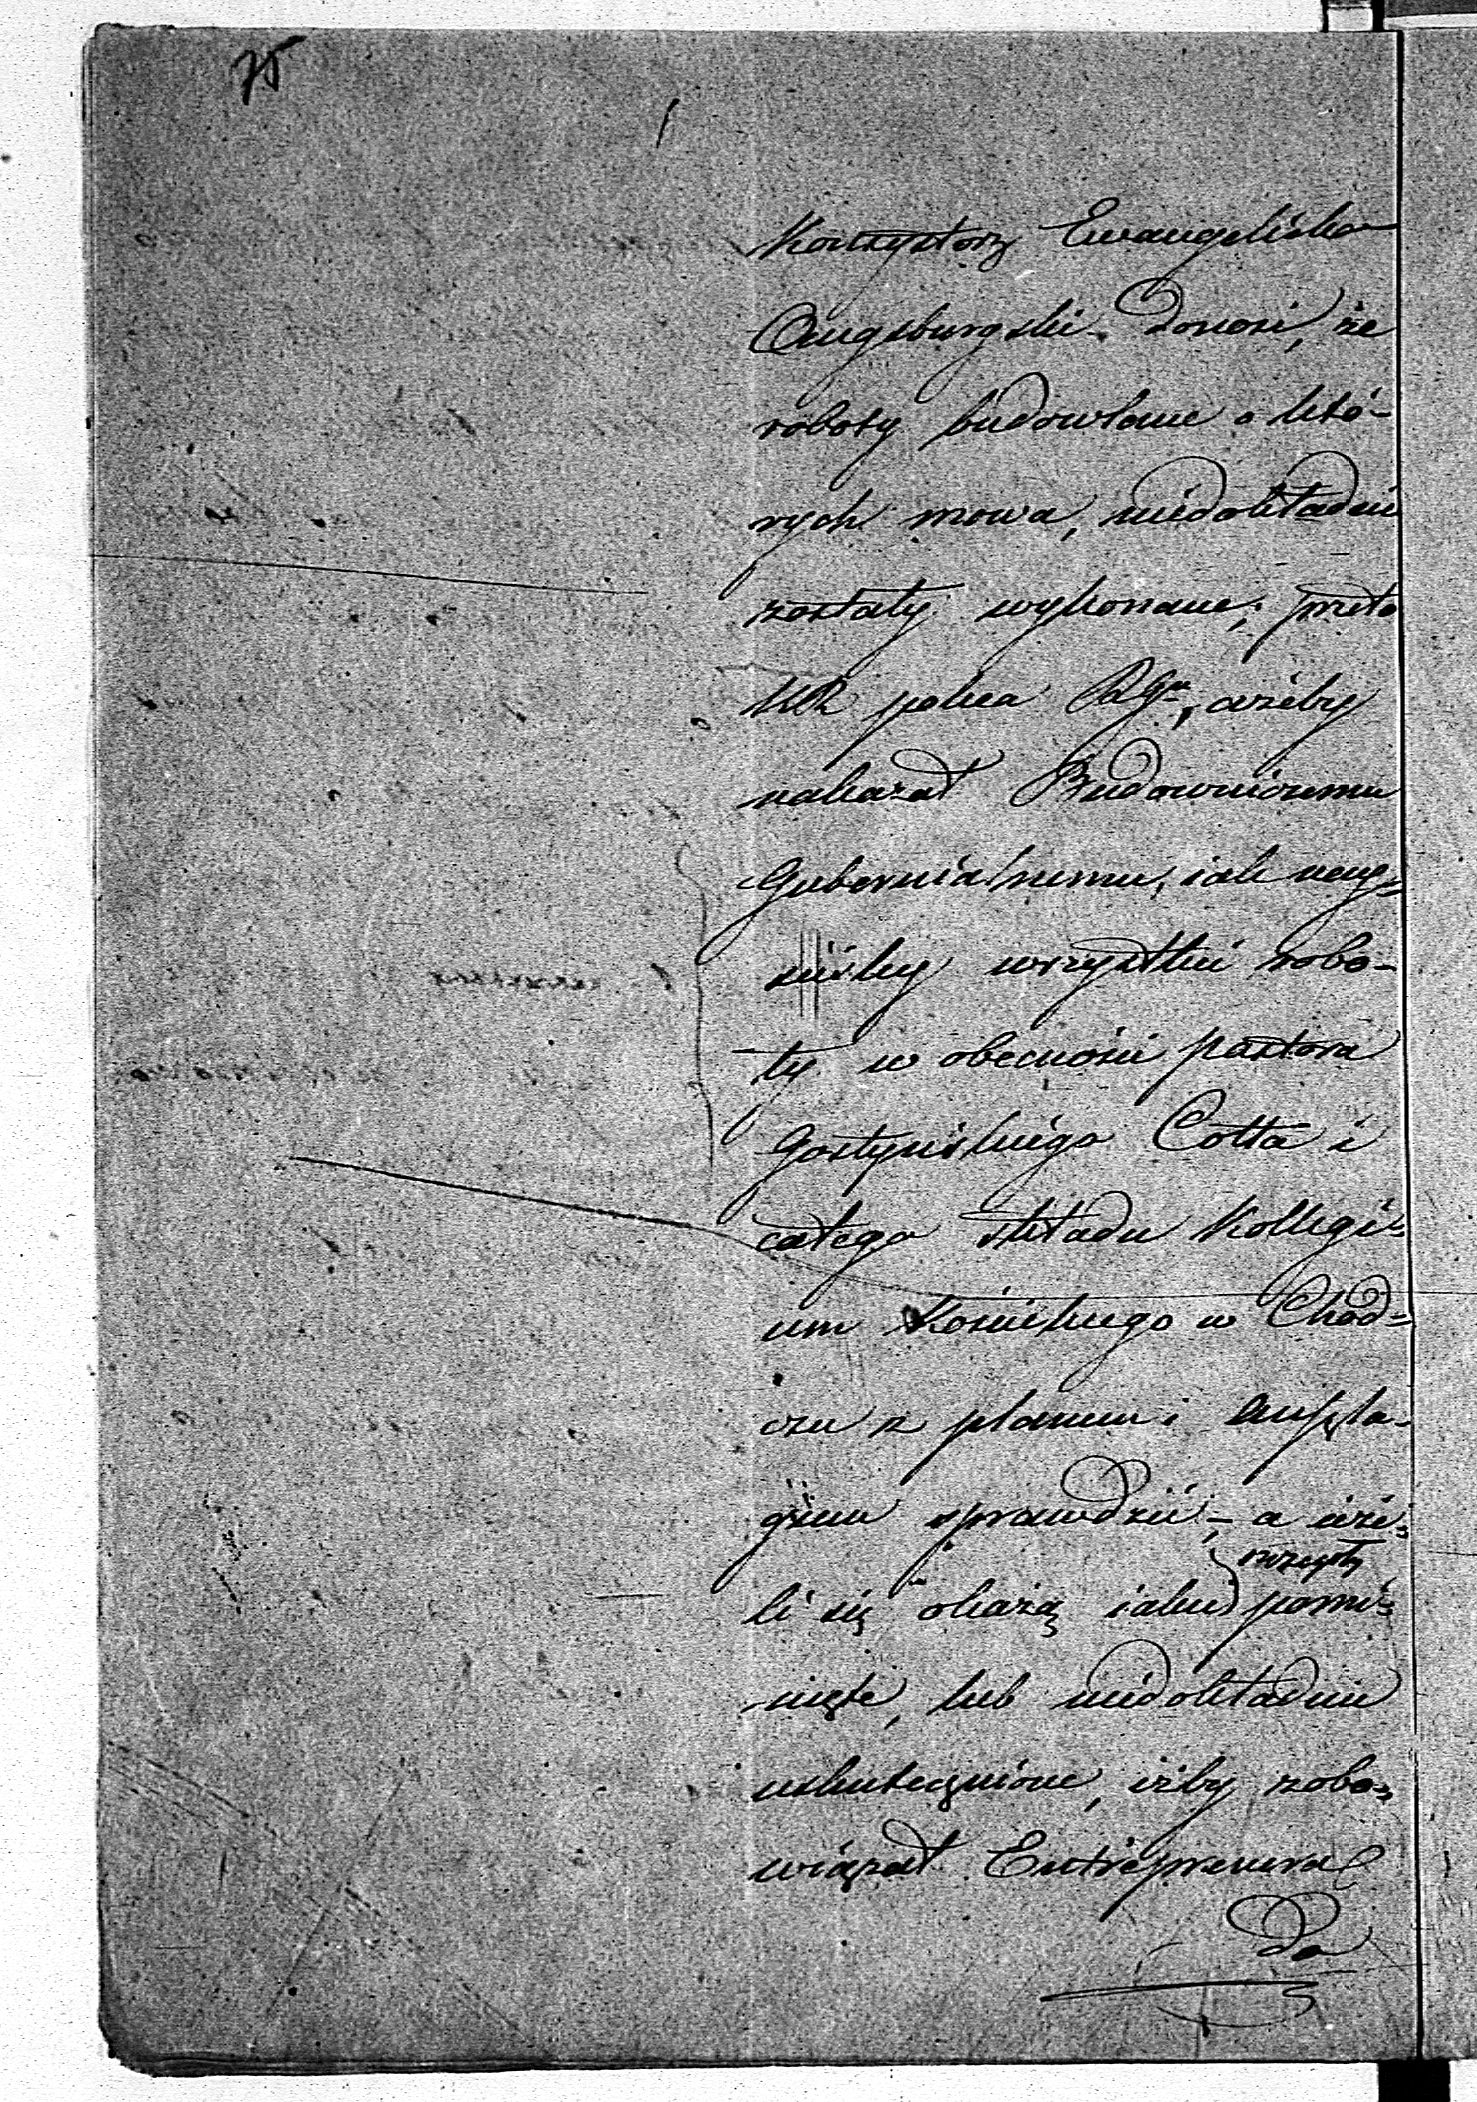 75
Konsystorz Ewangelicko
Augsburgski donosi, że
roboty budowlane o któ-
rych mowa, niedokładnie
zostały wykonane; przeto
KR poleca RGu, ażeby
nakazał Budowniczemu
Gubernialnemu, iak nay-
ściśley wszystkie robo-
ty w obecności pastora
Gostyńskiego Cotta i
całego składu Kollegi-
um Kościelnego w Chod-
czu z planem i Anszla-
giem sprawdzić, - a ieże-
li się okażą iakie pomi-
nięte, lub niedokładnie
uskutecznione, iżby zobo-
wiązał Entreprenera
Do